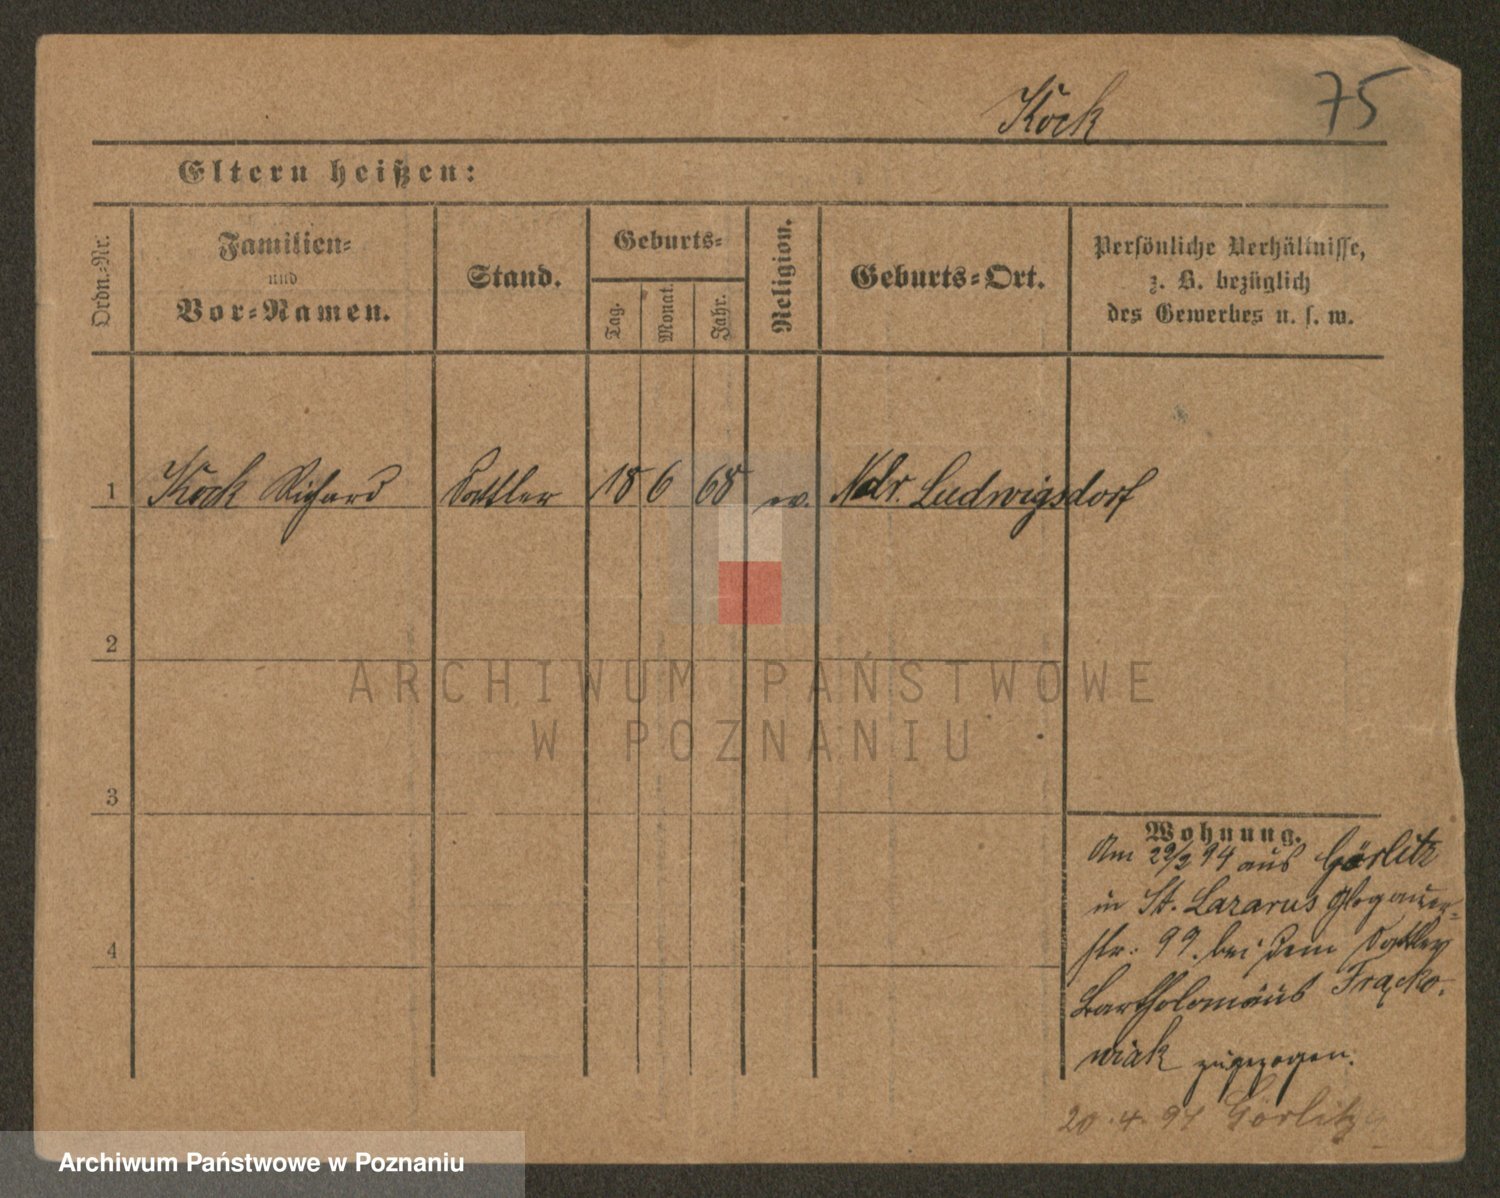 Kock
75
Eltern heißen:
Ordn.-Nr.
Familien-
und
Vor-Namen.
Stand.
Geburts-
Tag.
Monat.
Jahr.
Religion.
Geburts-Ort.
Persönliche Verhältnisse,
z. B. bezüglich
des Gewerbes u. s. w.
1 Kock Richard Sattler 18 6 68 ev. Ndr. Ludwigsdorf
2
ARCHIWUM PAŃSTWOWE
W POZNANIU
3
Wohnung.
Am 22/2 94 aus Görlitz
in St. Lazarus Glogauer-
str. 99. bei dem Sattler
4
Bartholomäus Frącko-
wiak zugezogen.
20.4.94 Görlitz
Archiwum Państwowe w Poznaniu